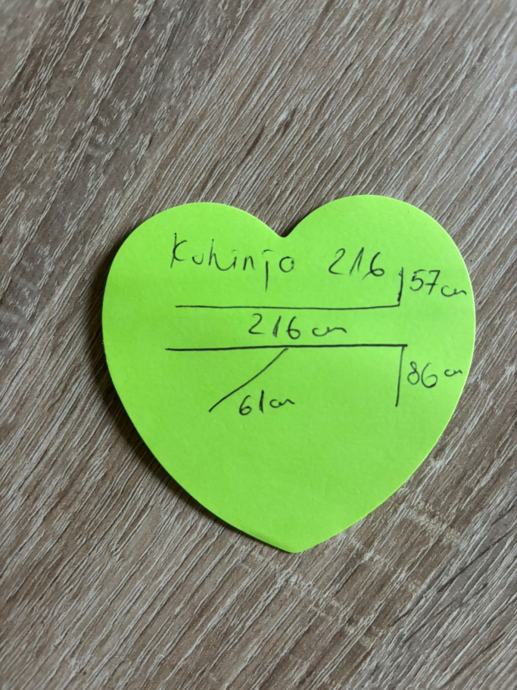 Kuhinja 216
57cm
216cm
86cm
61cm